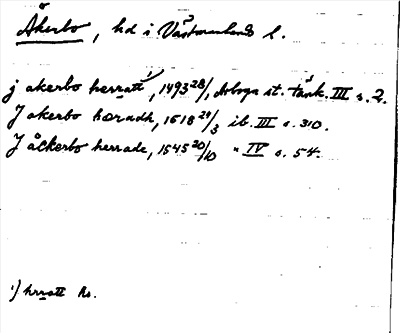 Åkerbo, hd i Västmanlands l.
j akerbo herratt¹⁾, 1493 28/1, Arboga st. tänk. III s. 2.
J akerbo haradh, 1518 29/3 ib. III s. 310.
J åckerbo herrade, 1545 20/10 " IV s. 54.
¹⁾ hrratt Hs.